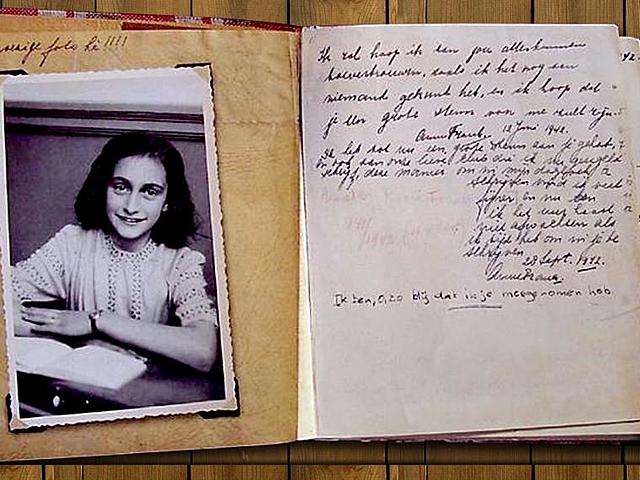 foto hè!!!!
Ik zal hoop ik aan jou alles kunnen
toevertrouwen, zoals ik het nog aan
niemand gekund heb, en ik hoop dat
je een grote steun voor me zult zijn.
Anne Frank. 12 Juni 1942.
Ik heb tot nu een grote steun aan je gehad,
en ook aan onze lieve club die ik nu geregeld
schrijf, deze manier om in mijn dagboek te
schrijven vind ik veel
fijner en nu kan
ik het uur haast
niet afwachten als
ik tijd heb om in je te
schrijven.
28 Sept. 1942.
Anne Frank.
Ik ben, O, zo blij dat ik je meegenomen heb.